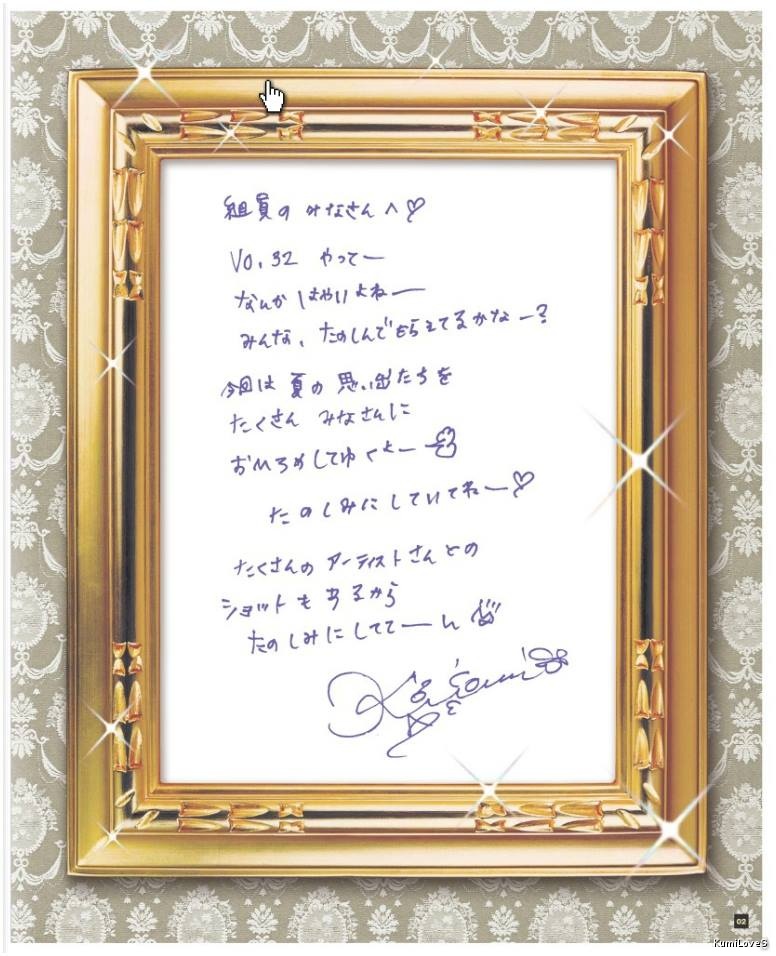 組員の みなさんへ♡
Vo.32 やってー
なんか はやいよねー
みんな、たのしんでもらえてるかなー?
今回は 夏の 思い出たちを
たくさん みなさんに
おひろめしてゆくよー
たのしみにしていてねー♡
たくさんの アーティストさんとの
ショットも あるから
たのしみにしててーん
02
KumiLoveS